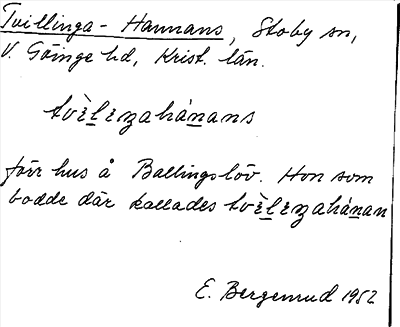 Tvillinga - Hannans, Stoby sn,
V. Göinge hd, Krist. län.
tvèlɛzahánans
förr hus å Ballingslöv. Hon som
bodde där kallades tvèlɛzahánan
E. Bergenrud 1952